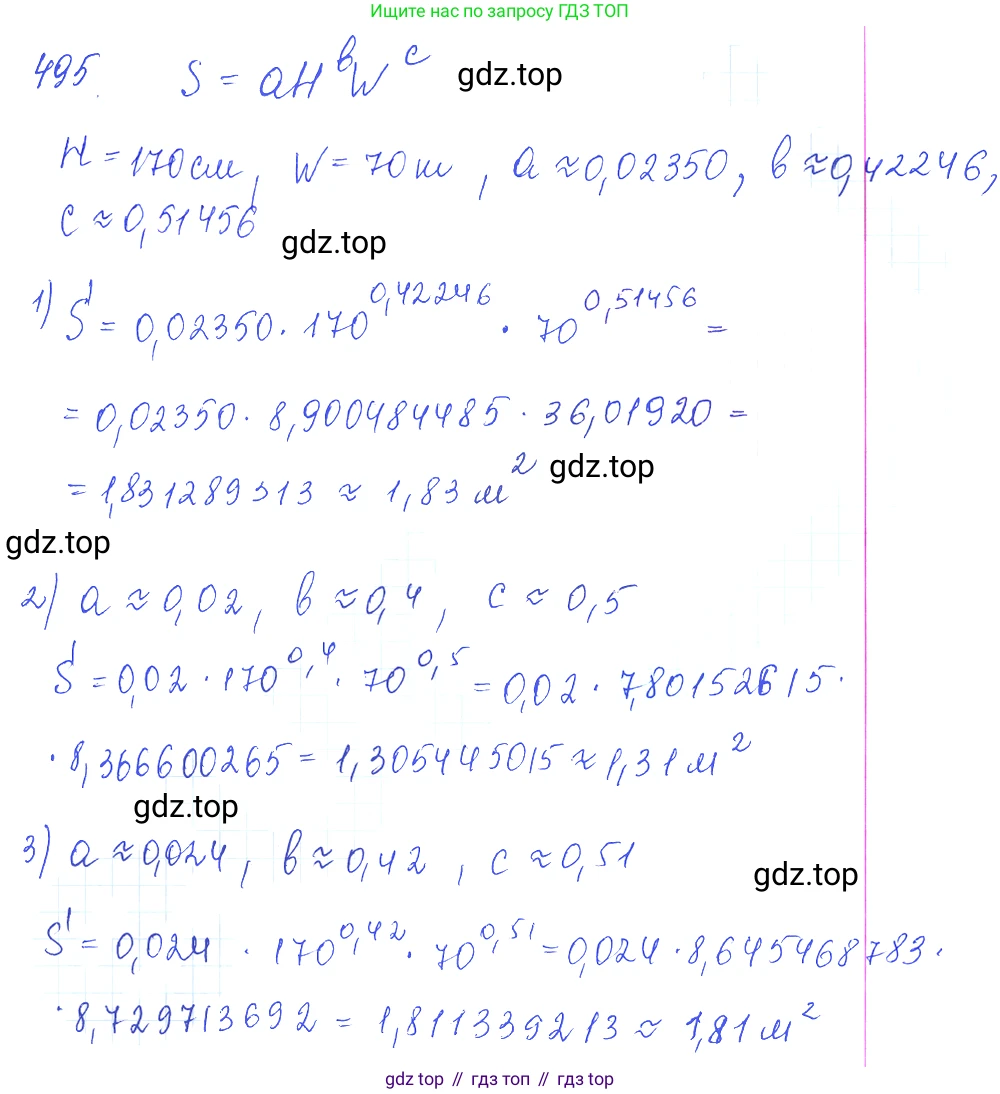 Ищите нас по запросу ГДЗ ТОП
495. S = aH^b W^c gdz.top
H = 170 см, W = 70 кг, a ≈ 0,02350, b ≈ 0,42246,
c ≈ 0,51456
gdz.top
1) S = 0,02350 · 170^0,42246 · 70^0,51456 =
= 0,02350 · 8,900484485 · 36,01920 =
= 1,831289313 ≈ 1,83 м² gdz.top
gdz.top
2) a ≈ 0,02, b ≈ 0,4, c ≈ 0,5
S = 0,02 · 170^0,4 · 70^0,5 = 0,02 · 7,80152615 ·
· 8,366600265 = 1,305445015 ≈ 1,31 м²
gdz.top
3) a ≈ 0,024, b ≈ 0,42, c ≈ 0,51
gdz.top
S = 0,024 · 170^0,42 · 70^0,51 = 0,024 · 8,645468783 ·
· 8,729713692 = 1,811339213 ≈ 1,81 м²
gdz top // гдз топ // гдз top